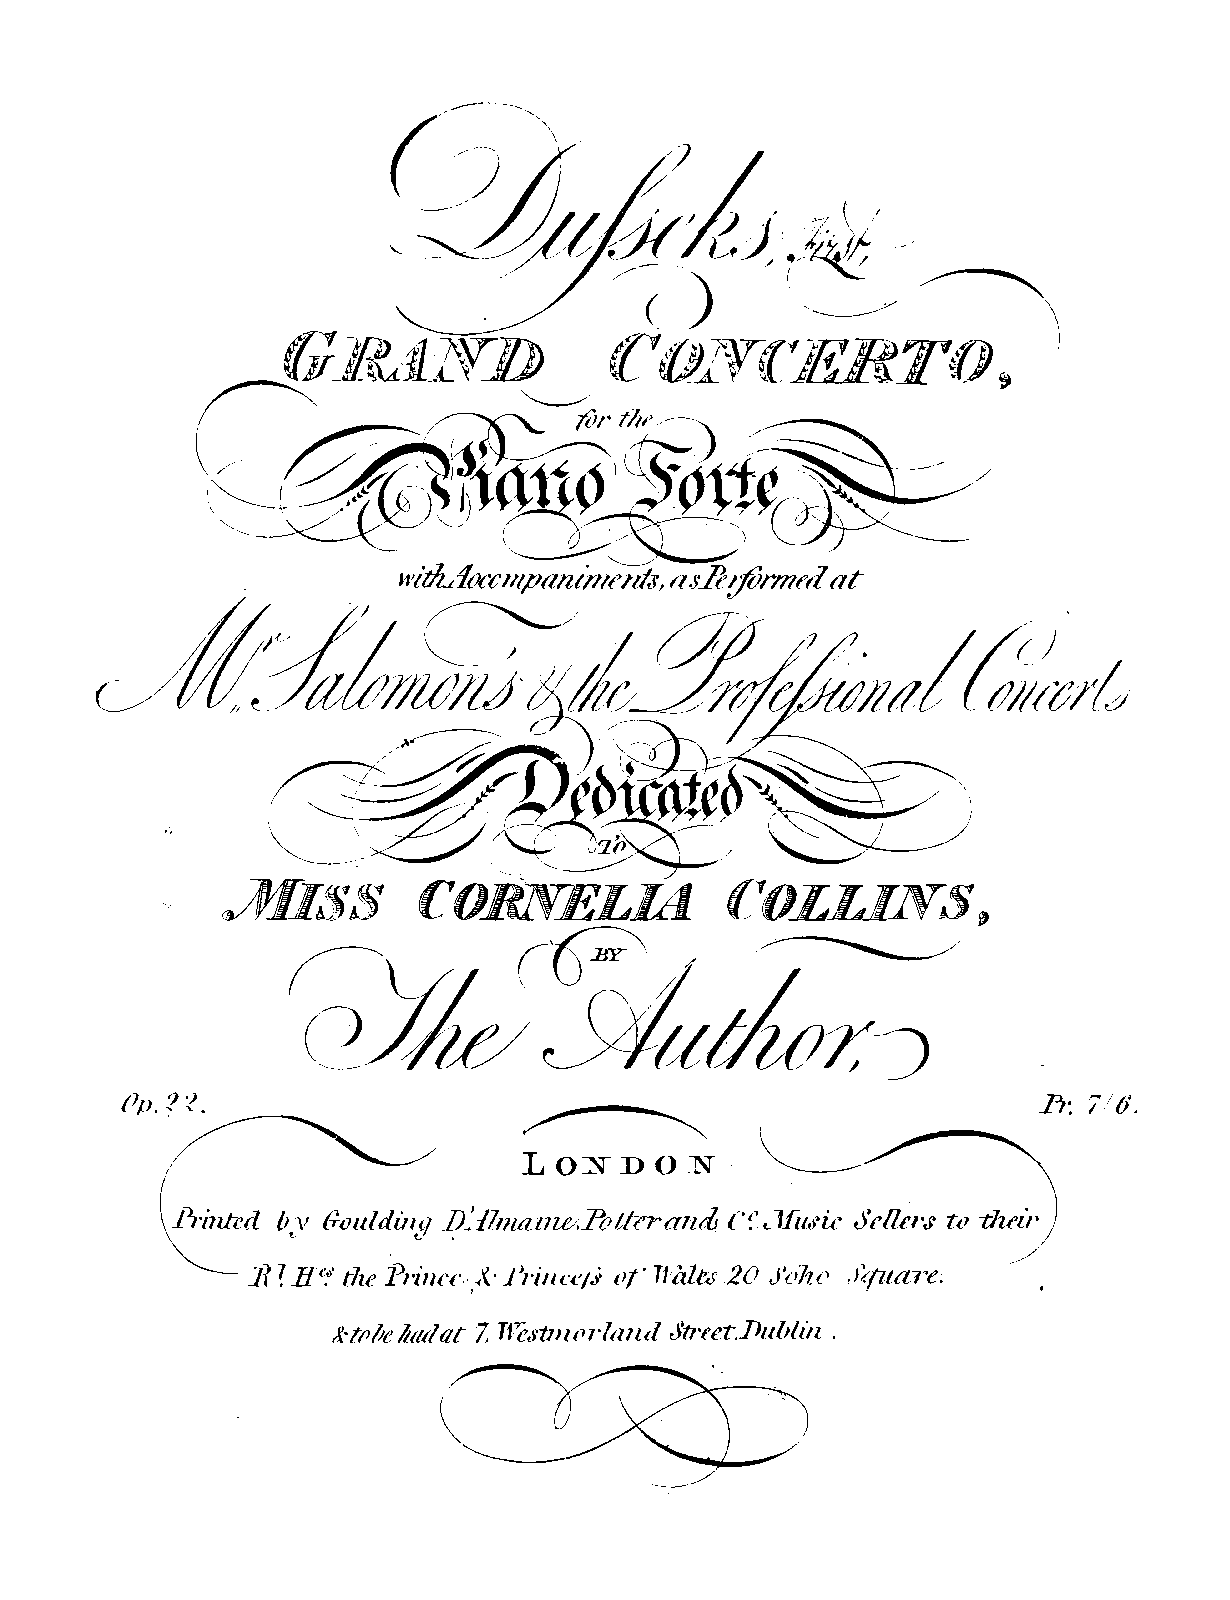 Dufscks, First,
GRAND CONCERTO,
for the
Piano Forte
with Accompaniments, as Performed at
Mr. Salomon's & the Profefsional Concerts
Dedicated
To
MISS CORNELIA COLLINS,
BY
The Author,
Op. 22.
Pr. 7/6.
LONDON
Printed by Goulding D'Almaine, Potter and Co. Music Sellers to their
Rl. Hes. the Prince & Princefs of Wales 20 Soho Square.
& to be had at 7, Westmorland Street, Dublin.